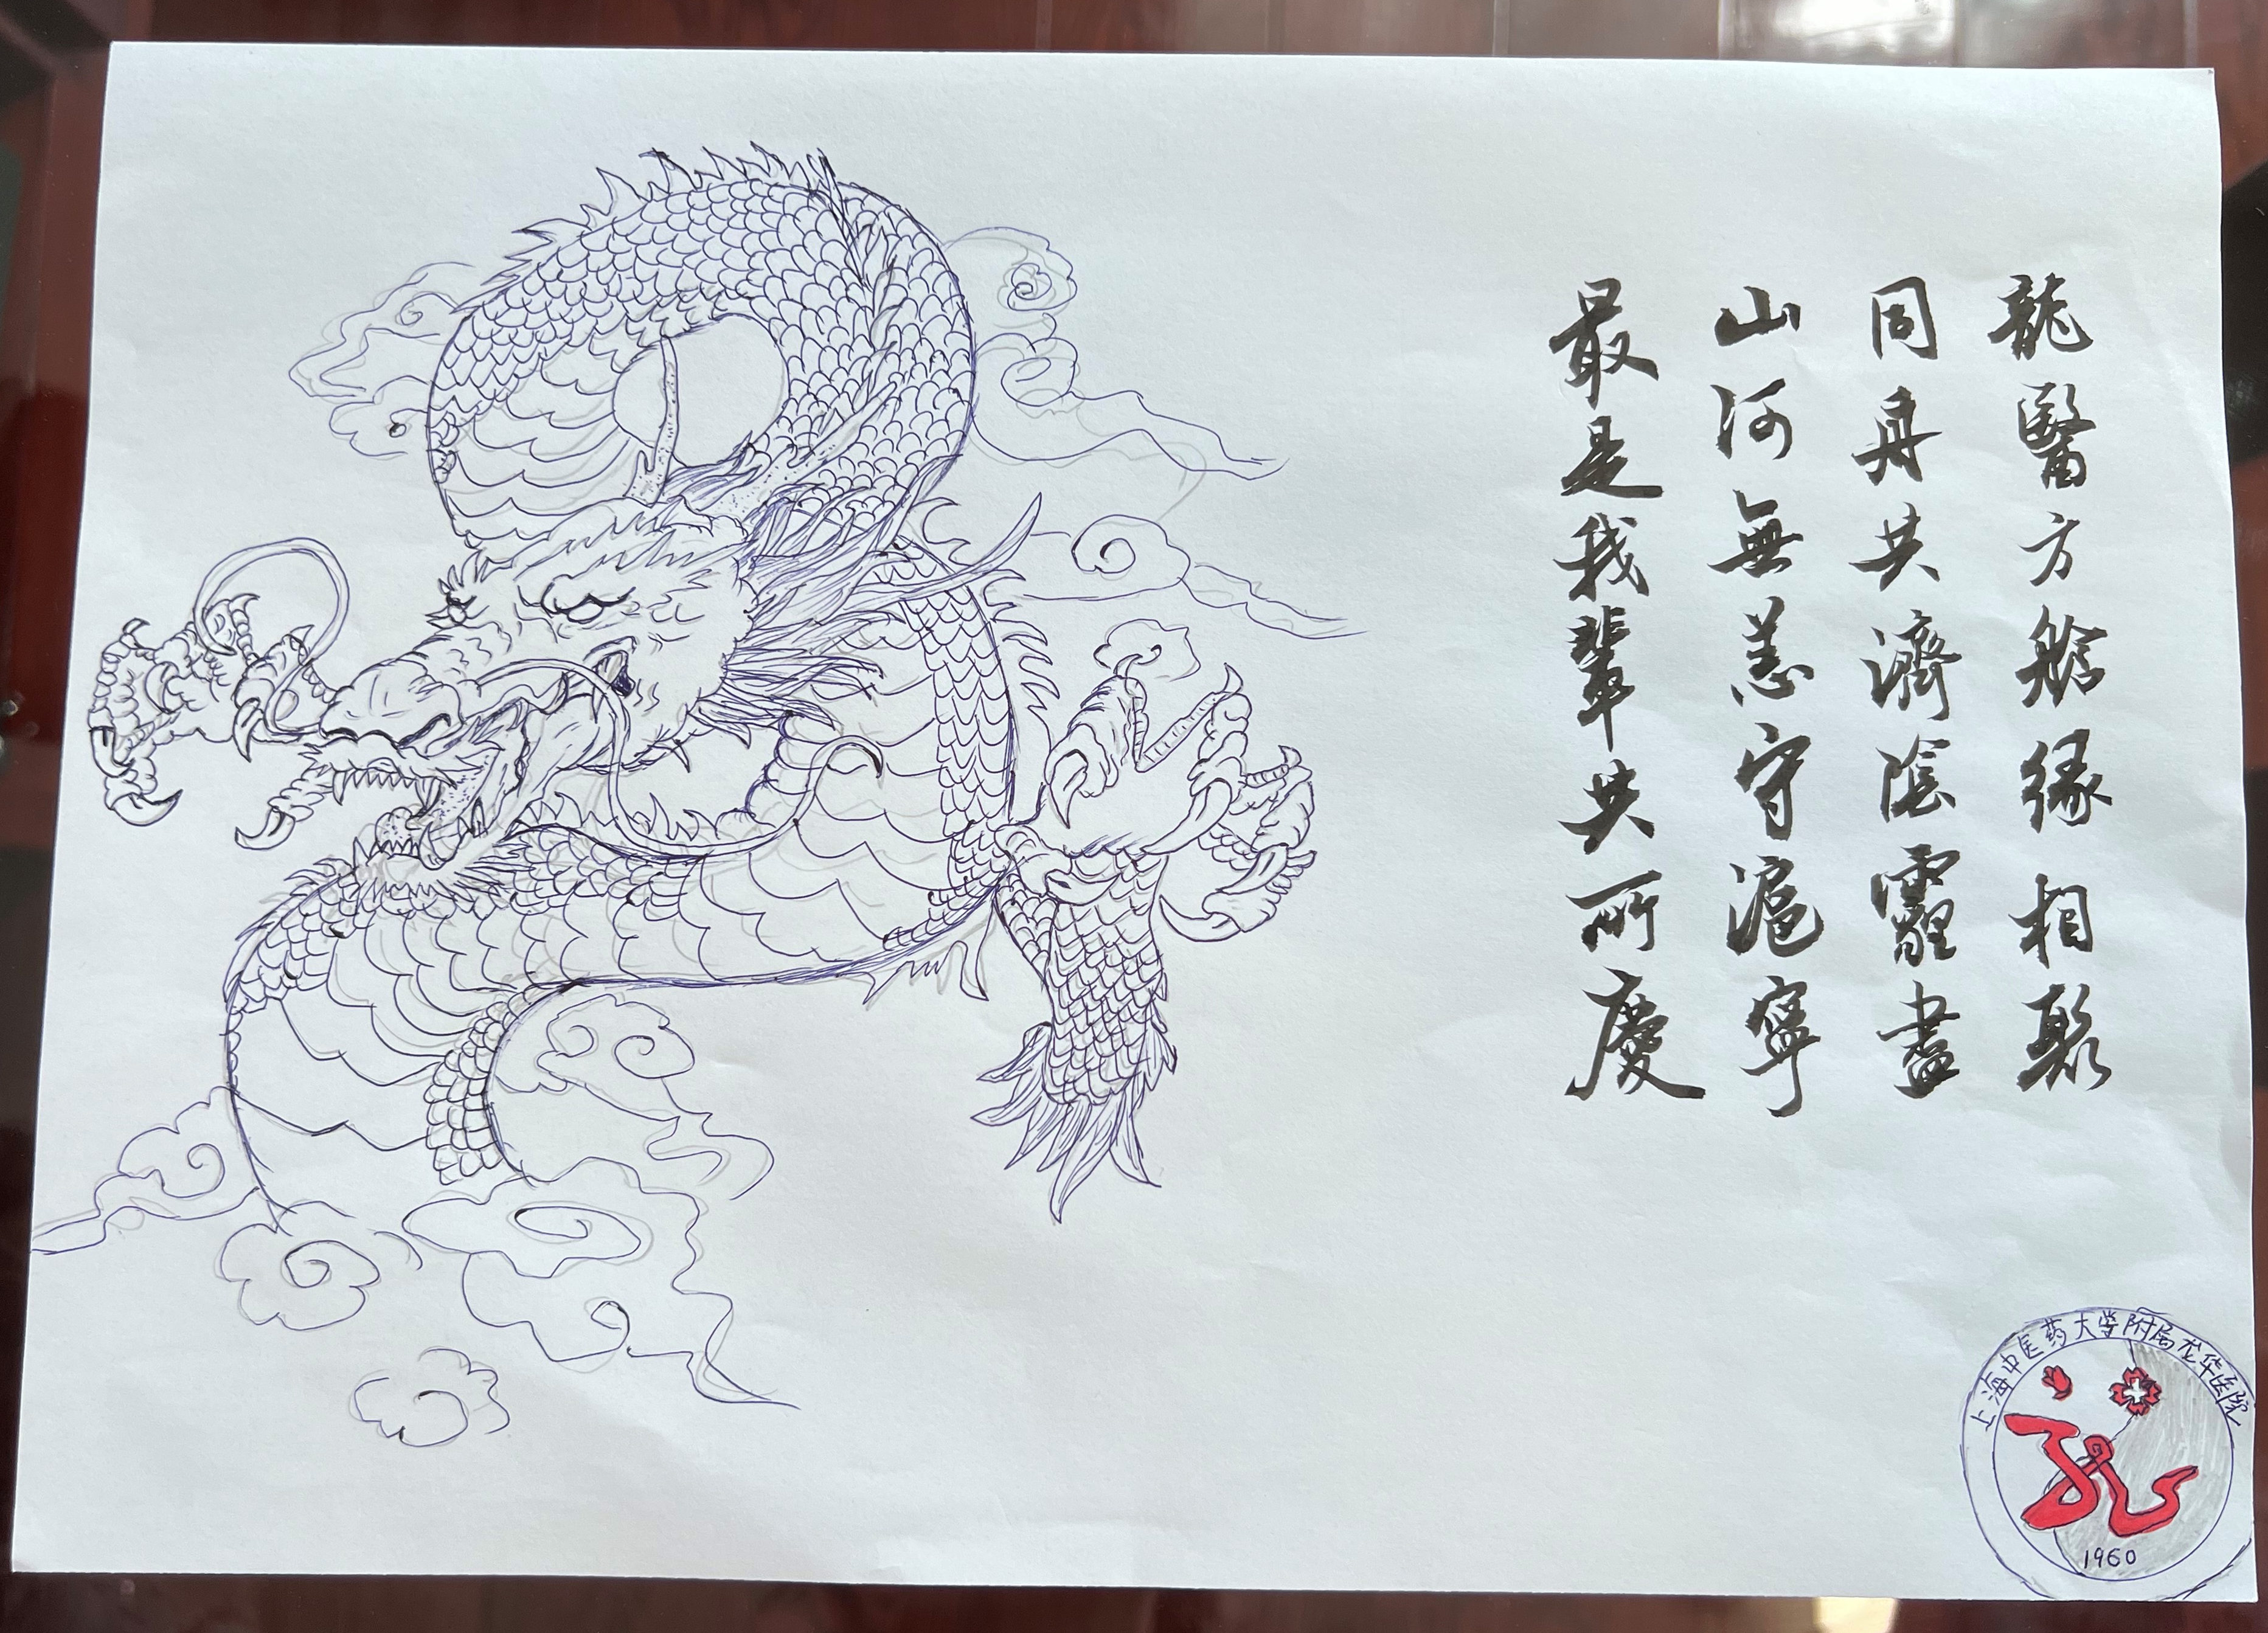 龍醫方舱緣相聚
同舟共濟陰霾盡
山河無恙守滬寧
最是我輩共所慶
上海中医药大学附属龙华医院
龙
1960